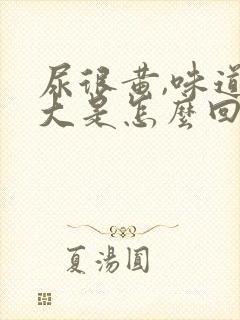 尿很黄,味道
大是怎麼回
夏湯圓